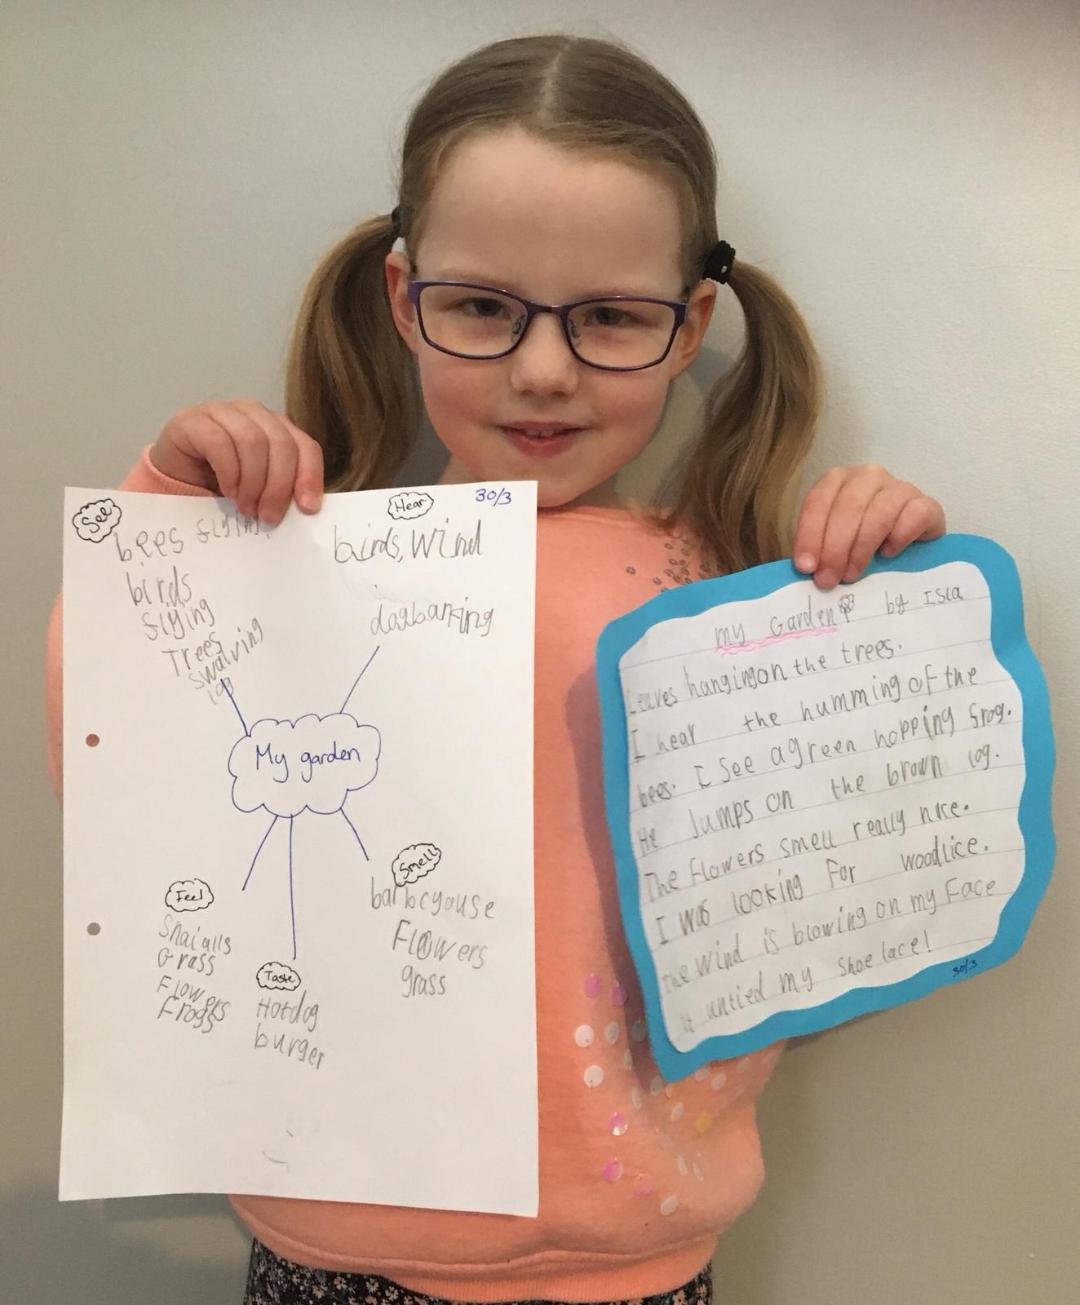 30/3
See
bees flying
birds
flying
Trees
swaiving
log
Hear
birds, wind
dog barking
My garden
Smell
barbcyouse
Flowers
grass
Feel
Snaialls
Grass
Flowers
Frogs
Taste
Hotdog
burger
my Garden by Isla
Leaves hanging on the trees.
I hear the humming of the
bees. I see a green hopping frog.
He Jumps on the brown log.
The flowers smell really nice.
I was looking For woodlice.
The Wind is blowing on my Face
it untied my shoe lace!
30/3